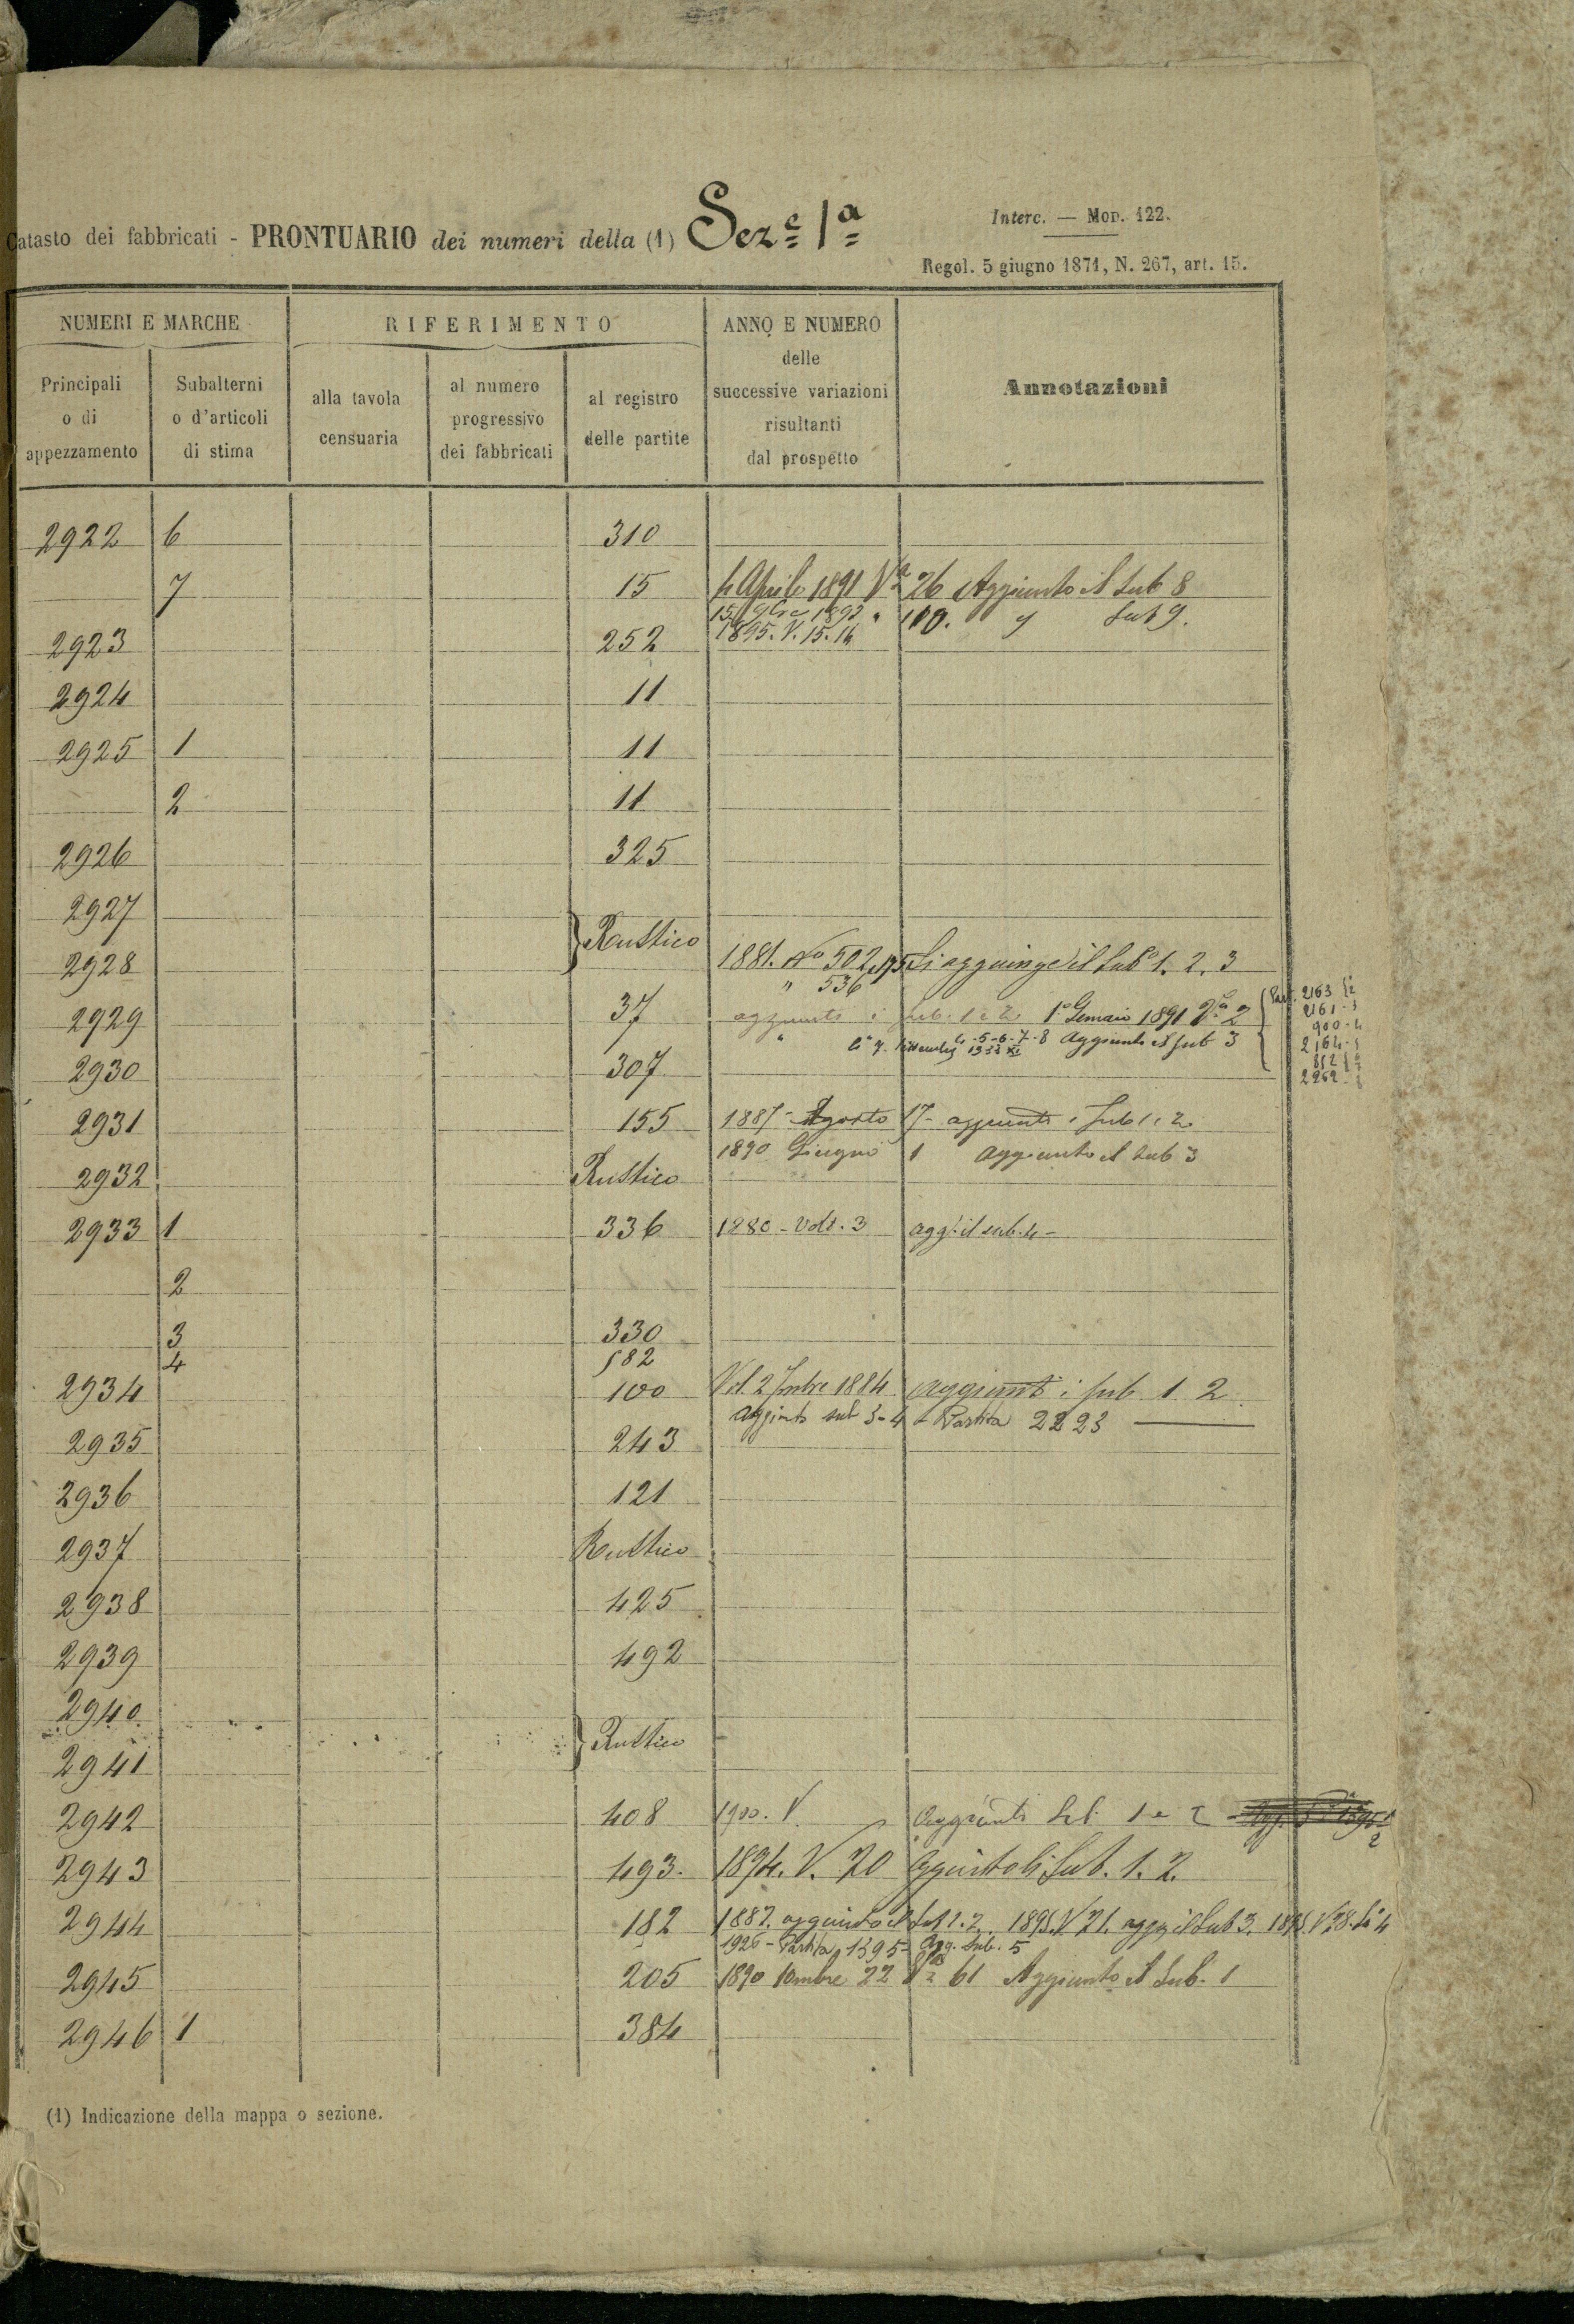 Catasto dei fabbricati - PRONTUARIO dei numeri della (1) Sez.e 1a
Interc. — Mod. 122.
Regol. 5 giugno 1871, N. 267, art. 15.
NUMERI E MARCHE
RIFERIMENTO
ANNO E NUMERO
delle
successive variazioni
risultanti
dal prospetto
Annotazioni
Principali
o di
appezzamento
Subalterni
o d'articoli
di stima
alla tavola
censuaria
al numero
progressivo
dei fabbricati
al registro
delle partite
2922 6 310
7 15 4 Aprile 1891 Va 26 Aggiunto il Sub 8
1893 " 110. Sub 9.
2923 252 1895. V. 15. 14
2924 11
2925 1 11
2 11
2926 325
2927
} Rustico
2928 1881. No 502 Si aggiunge il Sub 1. 2. 3
" 536
2929 37 aggiunti i sub. 1 e 2 1o Gennaio 1891 Va 2
" 4-5-6-7-8 Aggiunto il sub 3
Part. 2163
2161
900-4
2164
812
2262
2930 307
2931 155 1887 - Agosto 17 - aggiunti i Sub 1 e 2
1890 Giugno 1 Aggiunto il Sub 3
2932 Rustico
2933 1 336 1880 - Volt. 3 agg. il sub. 4 -
2
3 330
4 582
2934 100 Vol. 2 7mbre 1884 aggiunti i sub 1. 2.
Aggiunto sub 3-4 Partita 2223
2935 243
2936 121
2937 Rustico
2938 425
2939 492
2940
} Rustico
2941
2942 408 1900. V. Aggiunti Sub 1 e 2
2943 493. 1894. V. 20 Sub. 1. 2.
2944 182 1882. aggiunto il Sub 1. 2. 1895. V 21. agg il Sub 3. 1895. V 28. 4
1926 - Partita 1395 - Agg. Sub. 5
2945 205 1890 10mbre 22 Va 61 Aggiunto il Sub. 1
2946 1 384
(1) Indicazione della mappa o sezione.